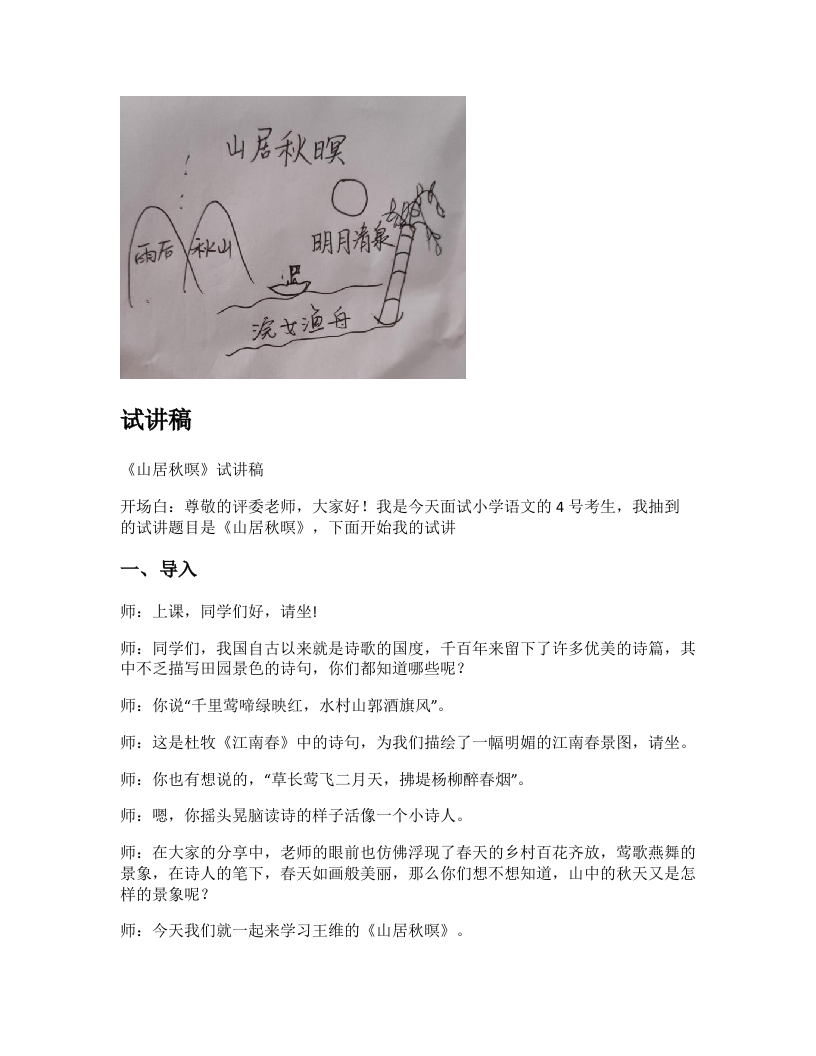 山居秋暝
明月清泉
雨后 秋山
浣女渔舟
试讲稿
《山居秋暝》试讲稿
开场白：尊敬的评委老师，大家好！我是今天面试小学语文的 4 号考生，我抽到
的试讲题目是《山居秋暝》，下面开始我的试讲
一、导入
师：上课，同学们好，请坐!
师：同学们，我国自古以来就是诗歌的国度，千百年来留下了许多优美的诗篇，其
中不乏描写田园景色的诗句，你们都知道哪些呢？
师：你说“千里莺啼绿映红，水村山郭酒旗风”。
师：这是杜牧《江南春》中的诗句，为我们描绘了一幅明媚的江南春景图，请坐。
师：你也有想说的，“草长莺飞二月天，拂堤杨柳醉春烟”。
师：嗯，你摇头晃脑读诗的样子活像一个小诗人。
师：在大家的分享中，老师的眼前也仿佛浮现了春天的乡村百花齐放，莺歌燕舞的
景象，在诗人的笔下，春天如画般美丽，那么你们想不想知道，山中的秋天又是怎
样的景象呢？
师：今天我们就一起来学习王维的《山居秋暝》。